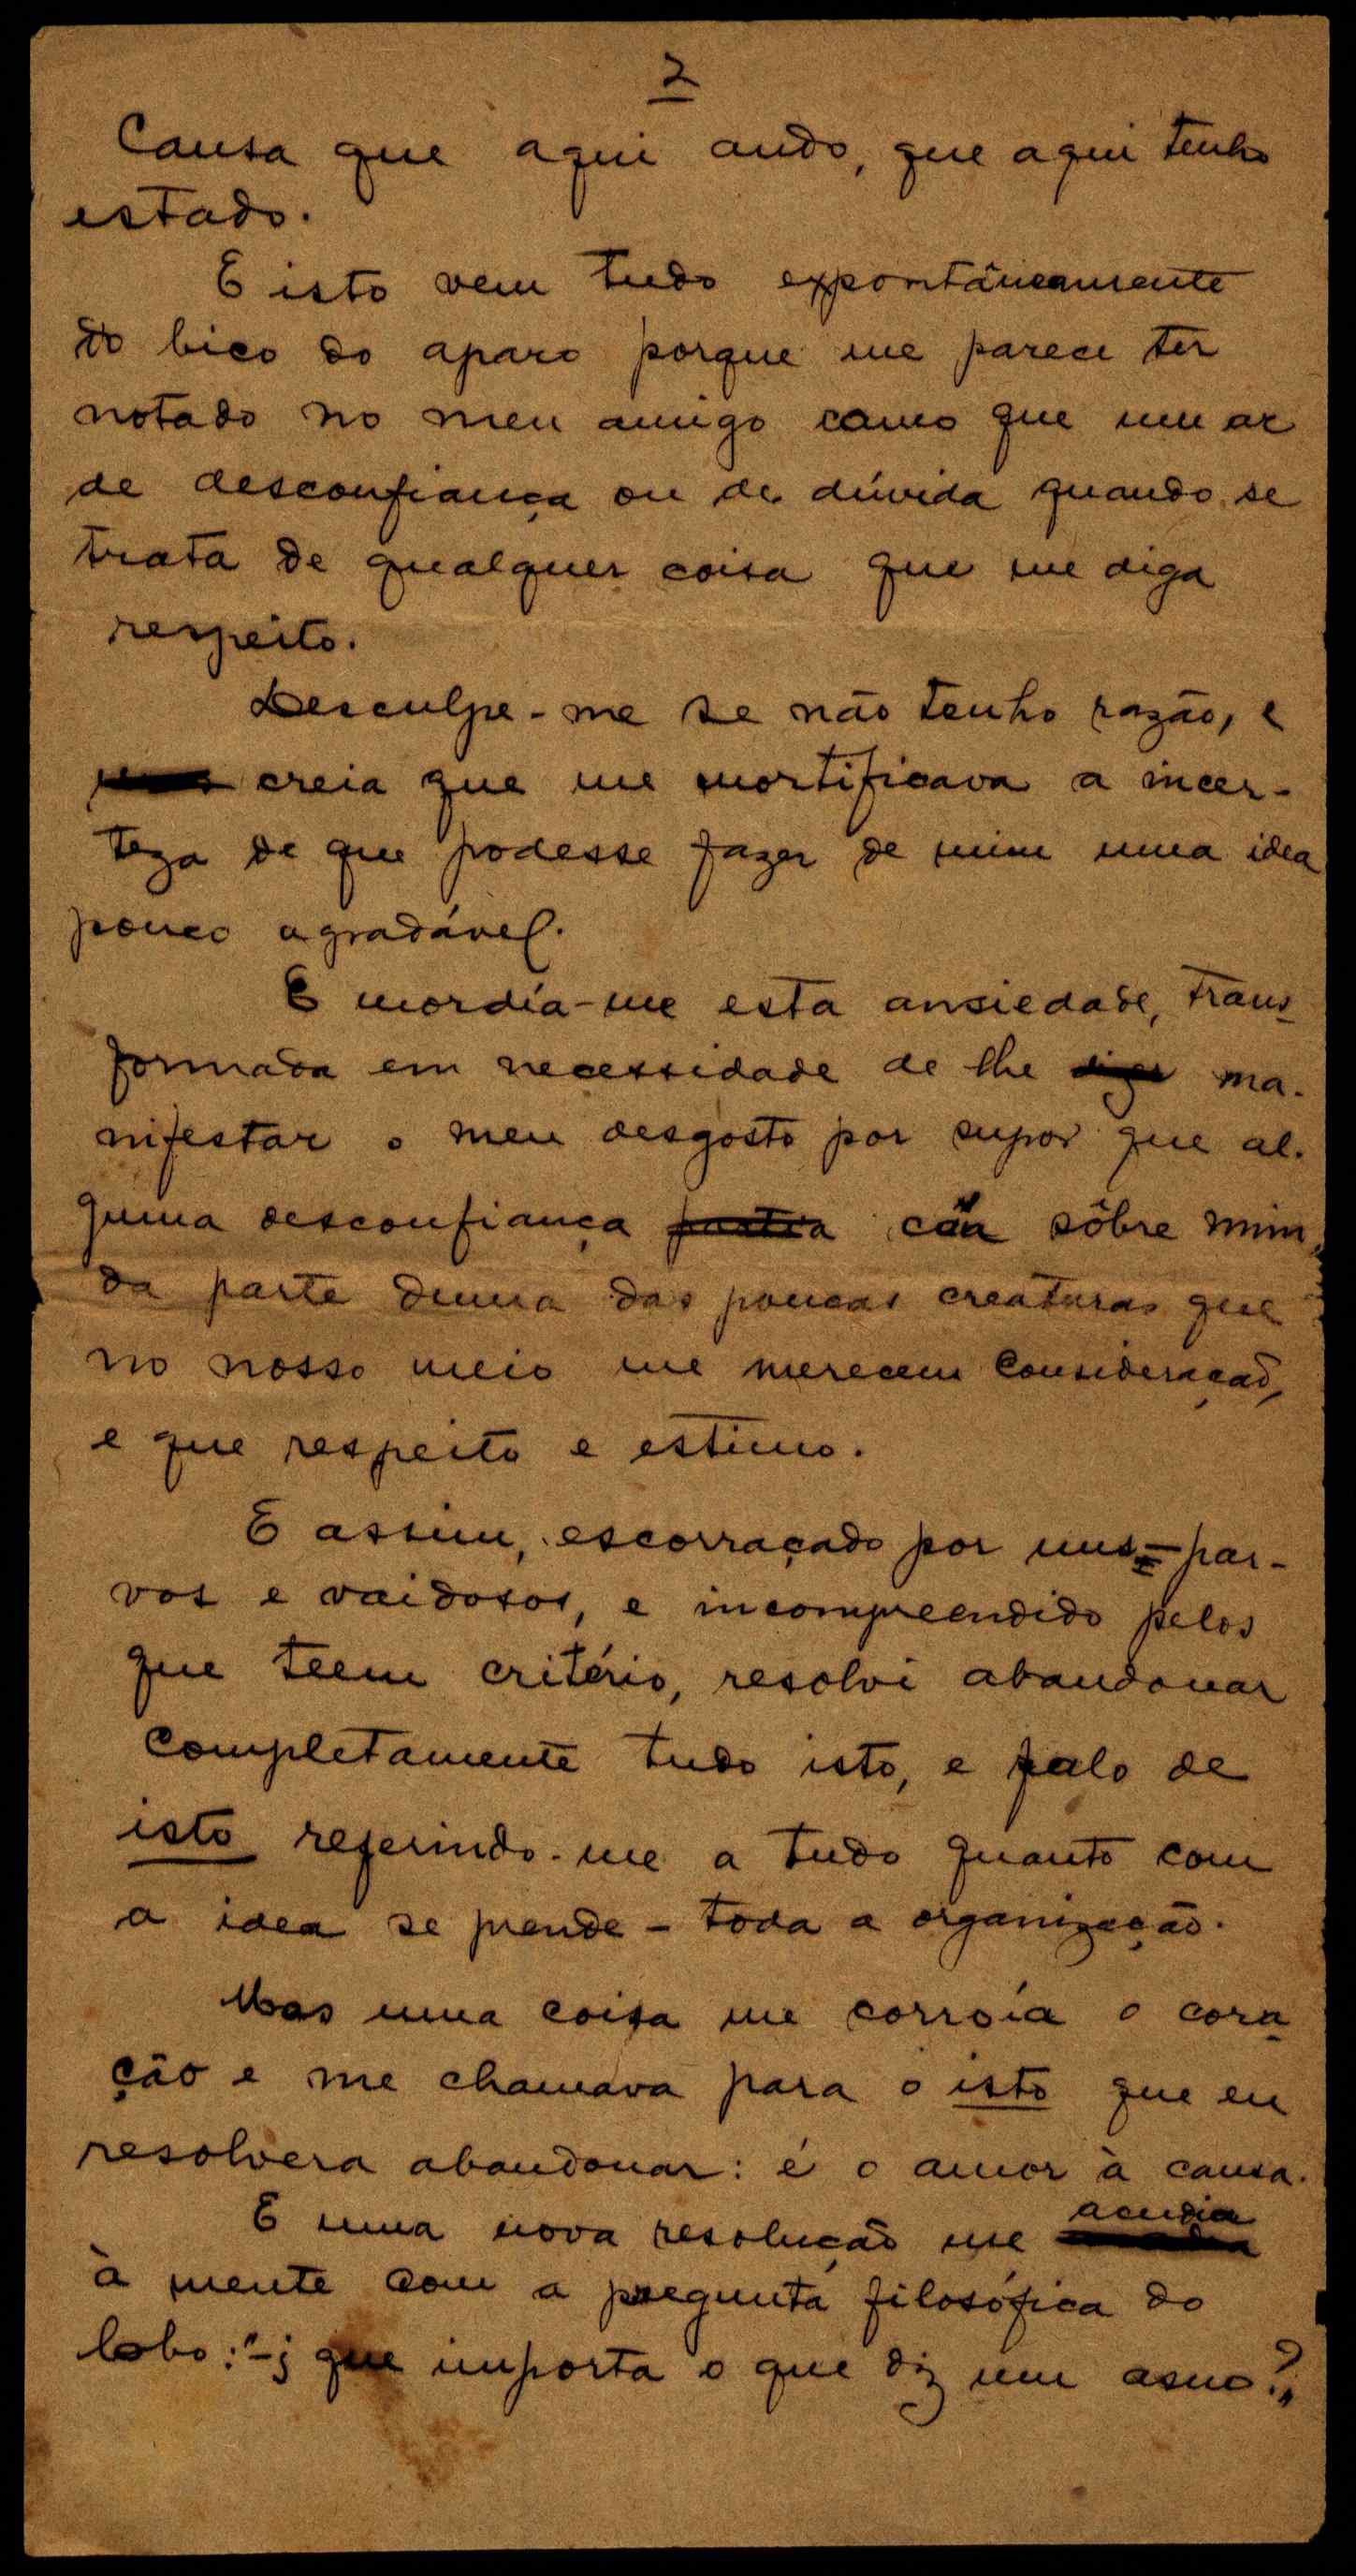 2
Causa que aqui ando, que aqui tenho
estado.
E isto vem tudo expontâneamente
do bico do aparo porque me parece ter
notado no meu amigo como que um ar
de desconfiança ou de dúvida quando se
trata de qualquer coisa que me diga
respeito.
Desculpe-me se não tenho razão, e
creia que me mortificava a incer-
teza de que podesse fazer de mim uma idea
pouco agradável.
E mordía-me esta ansiedade, trans-
formada em necessidade de lhe dizer ma-
nifestar o meu desgosto por supor que al-
guma desconfiança partia cáia sôbre mim,
da parte duma das poucas creaturas que
no nosso meio me merecem consideração,
e que respeito e estimo.
E assim, escorraçado por uns = par-
vos e vaidosos, e incompreendido pelos
que teem critério, resolvi abandonar
completamente tudo isto, e falo de
isto referindo-me a tudo quanto com
a idea se prende - toda a organização.
Mas uma coisa me corroía o cora-
ção e me chamava para o isto que eu
resolvera abandonar: é o amor à causa.
E uma nova resolução me acudia
à mente com a pregunta filosófica do
lobo: "-¿ que importa o que diz um asno?"